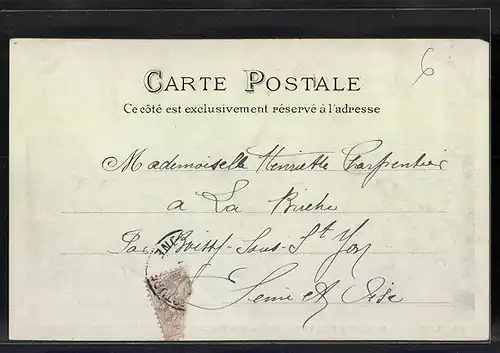 6
CARTE POSTALE
Ce côté est exclusivement réservé à l'adresse
Mademoiselle Henriette Charpentier
a La Biche
Par Boissy-Sous-St Yon
Seine et Oise